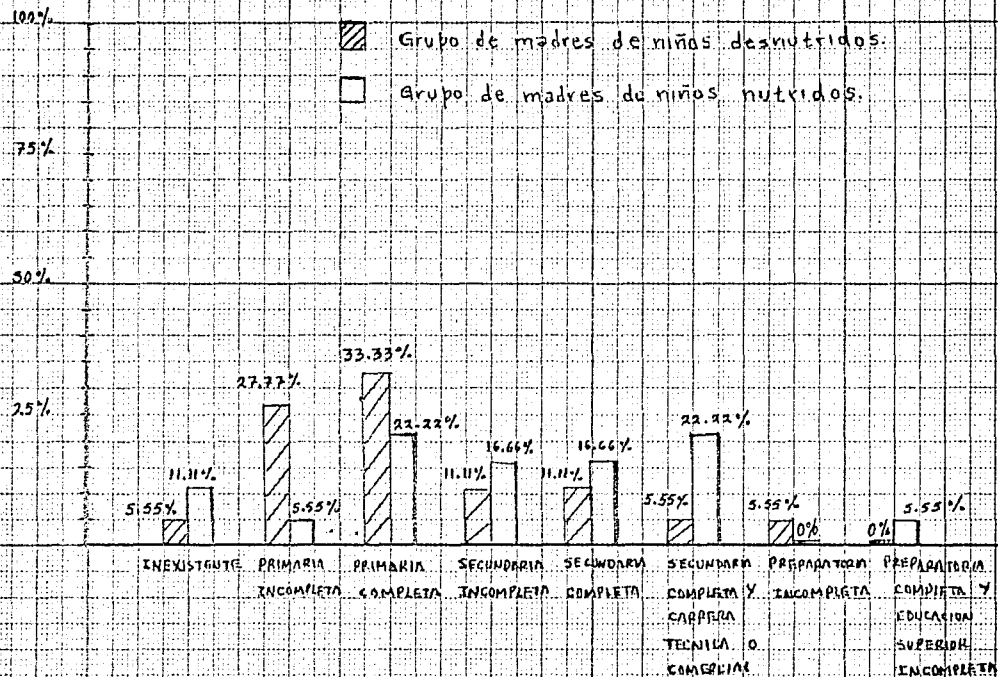 100%
Grupo de madres de niños desnutridos.
Grupo de madres de niños nutridos.
75%
50%
25%
5.55%
11.11%
27.77%
5.55%
33.33%
22.22%
11.11%
16.66%
11.11%
16.66%
5.55%
22.22%
5.55%
0%
0%
5.55%
INEXISTENTE
PRIMARIA
INCOMPLETA
PRIMARIA
COMPLETA
SECUNDARIA
INCOMPLETA
SECUNDARIA
COMPLETA
SECUNDARIA
COMPLETA Y
CARRERA
TECNICA O
COMERCIAL
PREPARATORIA
INCOMPLETA
PREPARATORIA
COMPLETA Y
EDUCACION
SUPERIOR
INCOMPLETA